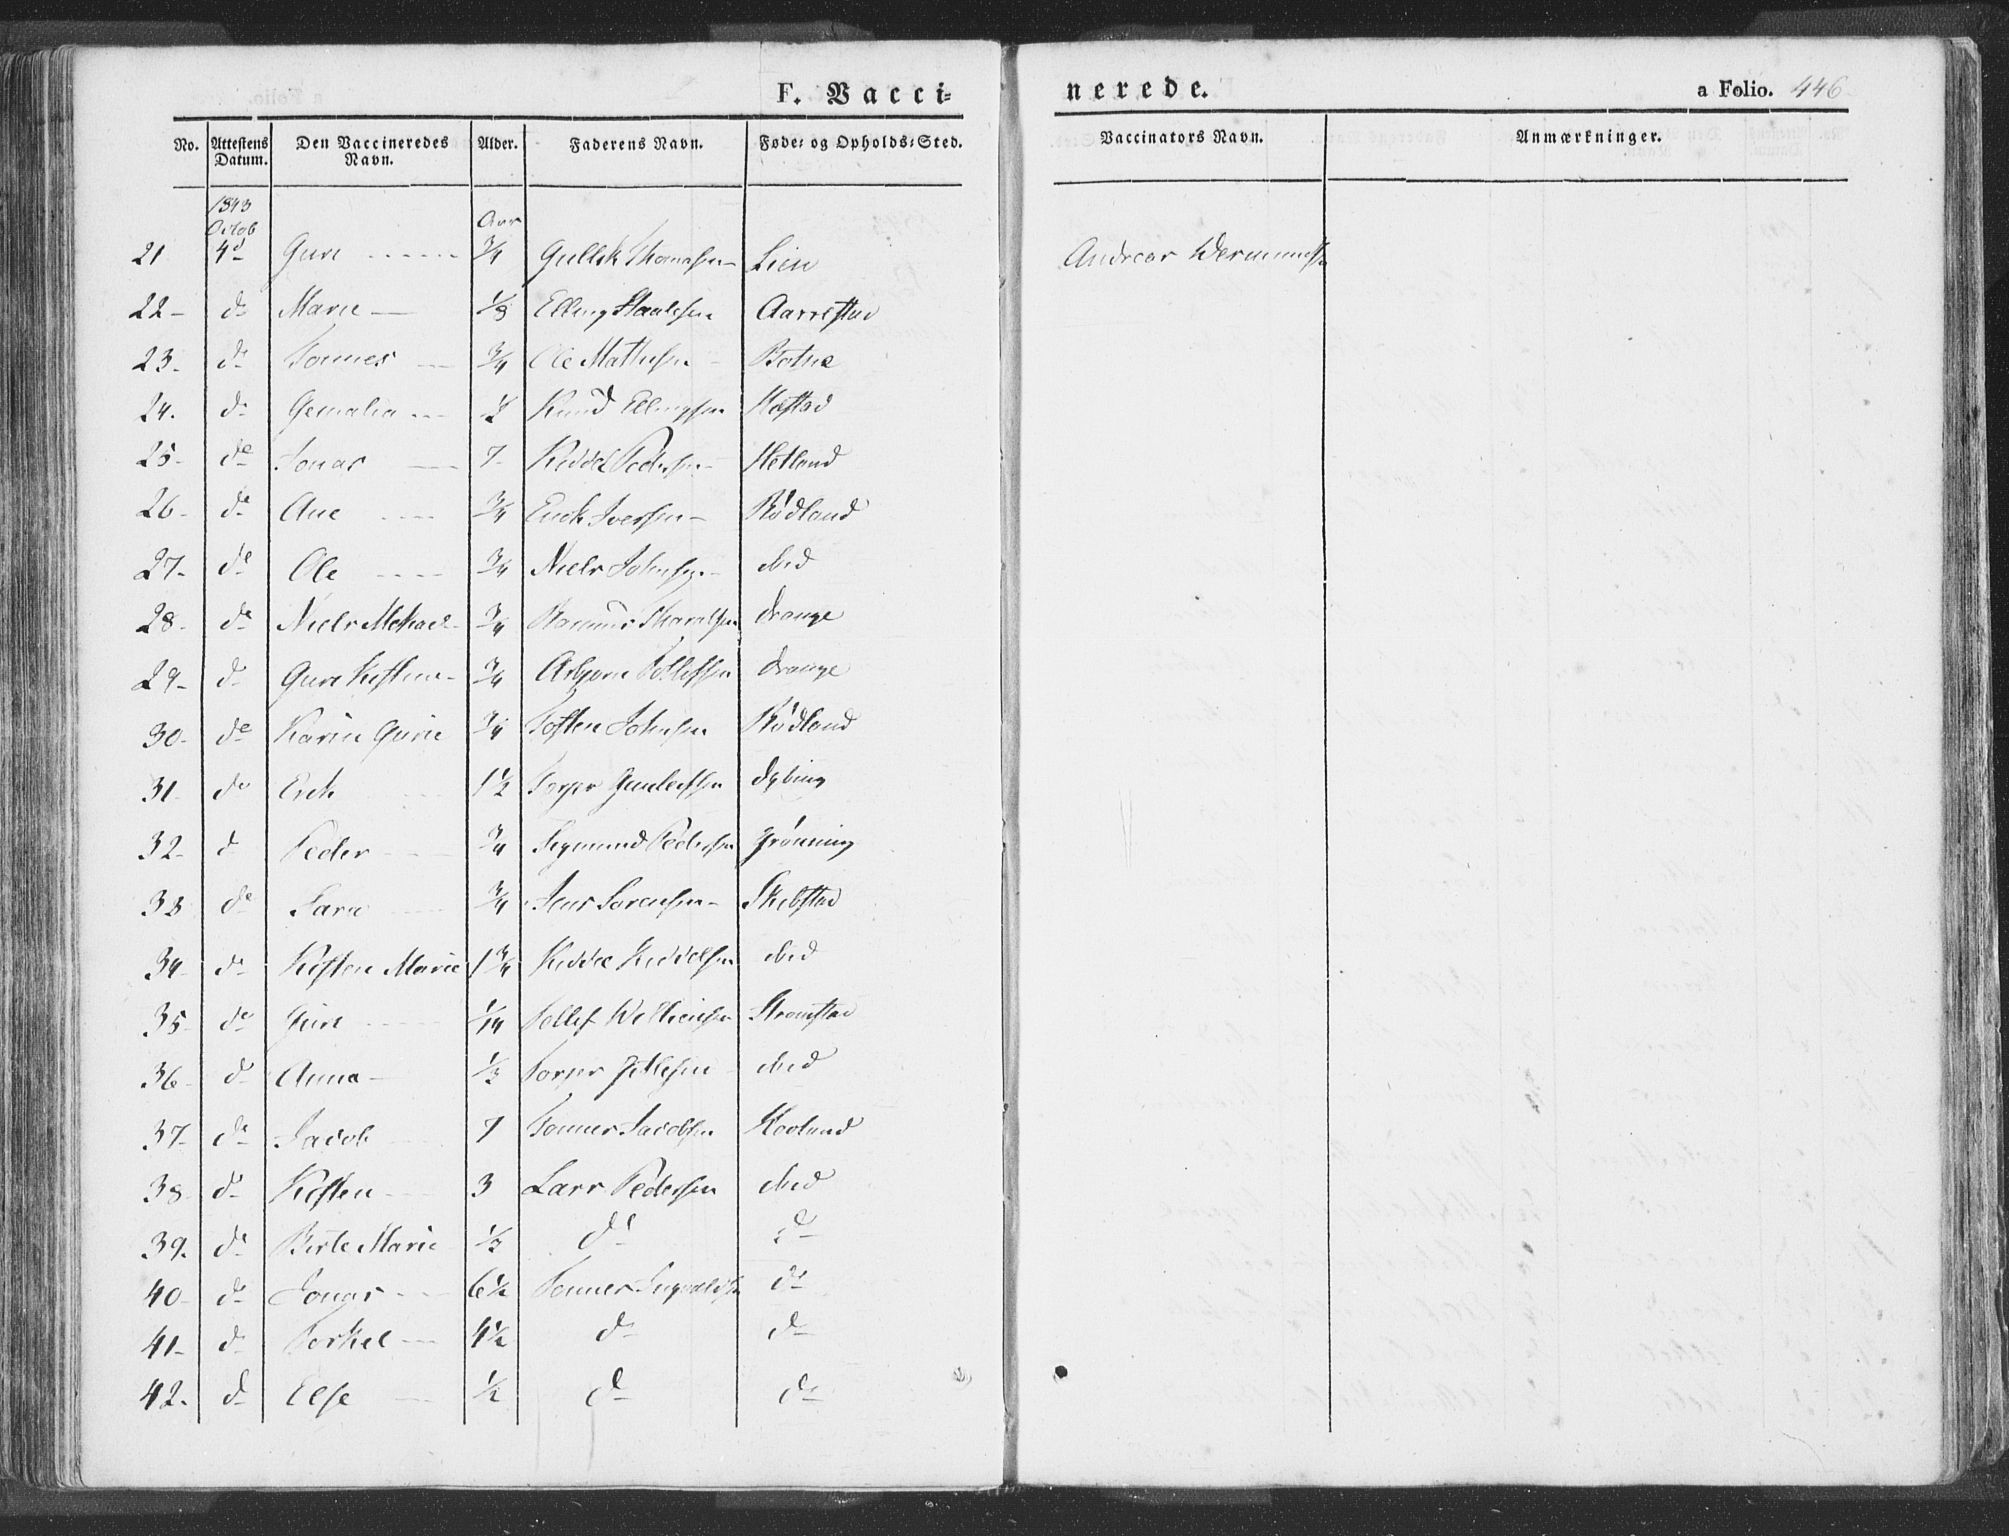 F. Vacci= nerede. a Folio. 446
No. Attestens Datum. Den Vaccineredes Navn. Alder. Faderens Navn. Føde= og Opholds=Sted. Vaccinators Navn. Anmærkninger.
1843
Octob Aar
21 4d Guri 3/4 Gullik Thomassen Lien Andreas
22 d Marie 1/8 Elling Aarrestad
23. d Tonnes 3/4 Ole Mathisen Botne
24. d 1/2 Knud Ellingsen Hæstad
25 d Jonas 7 Keddel Pedersen Hetland
26 d Ane 3/4 Erick Iversen Rødland
27 d Ole 3/4 Niels Johnsen ibid
28 d Niels Michael 3/4 Drange
29 d Guri Kistine 3/4 Asbjørn Tollefsen Drange
30 d Karen Gurie 3/4 Tosten Johnsen Rødland
31 d Erik 1 1/2 Torger Gundersen Dybing
32 d Peder 3/4 Sigmund Pedersen Grønning
33 d Sara 3/4 Jens Sørensen Skibstad
34 d Kisten Marie 1 3/4 Keddel Keddelsen ibid
35 d Guri 1/14 Tollef Strømstad
36 d Anna 1/2 Torger ibid
37 d Jacob 7 Tonnes Jacobsen Hovland
38 d Kisten 3 Lars Pedersen ibid
39. d Berte Marie 1/2 d d
40 d Jonas 6 1/2 Tonnes d
41 d Torkel 4 1/2 d d
42. d Else 1/2 d d